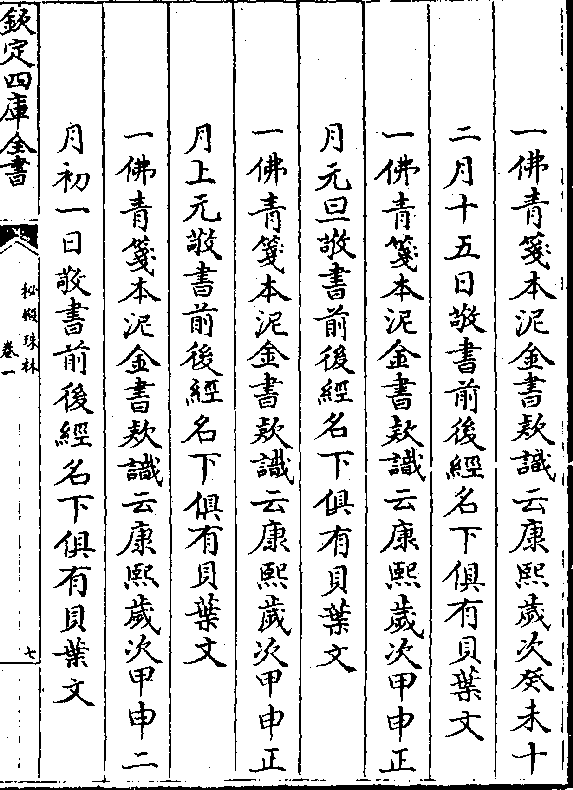 一佛青箋本泥金書款識云康熙歲次癸未十
二月十五日敬書前後經名下俱有貝葉文
一佛青箋本泥金書款識云康熙歲次甲申正
月元旦敬書前後經名下俱有貝葉文
一佛青箋本泥金書款識云康熙歲次甲申正
月上元敬書前後經名下俱有貝葉文
一佛青箋本泥金書款識云康熙歲次甲申二
月初一日敬書前後經名下俱有貝葉文
欽定四庫全書
秘殿珠林
卷一
七